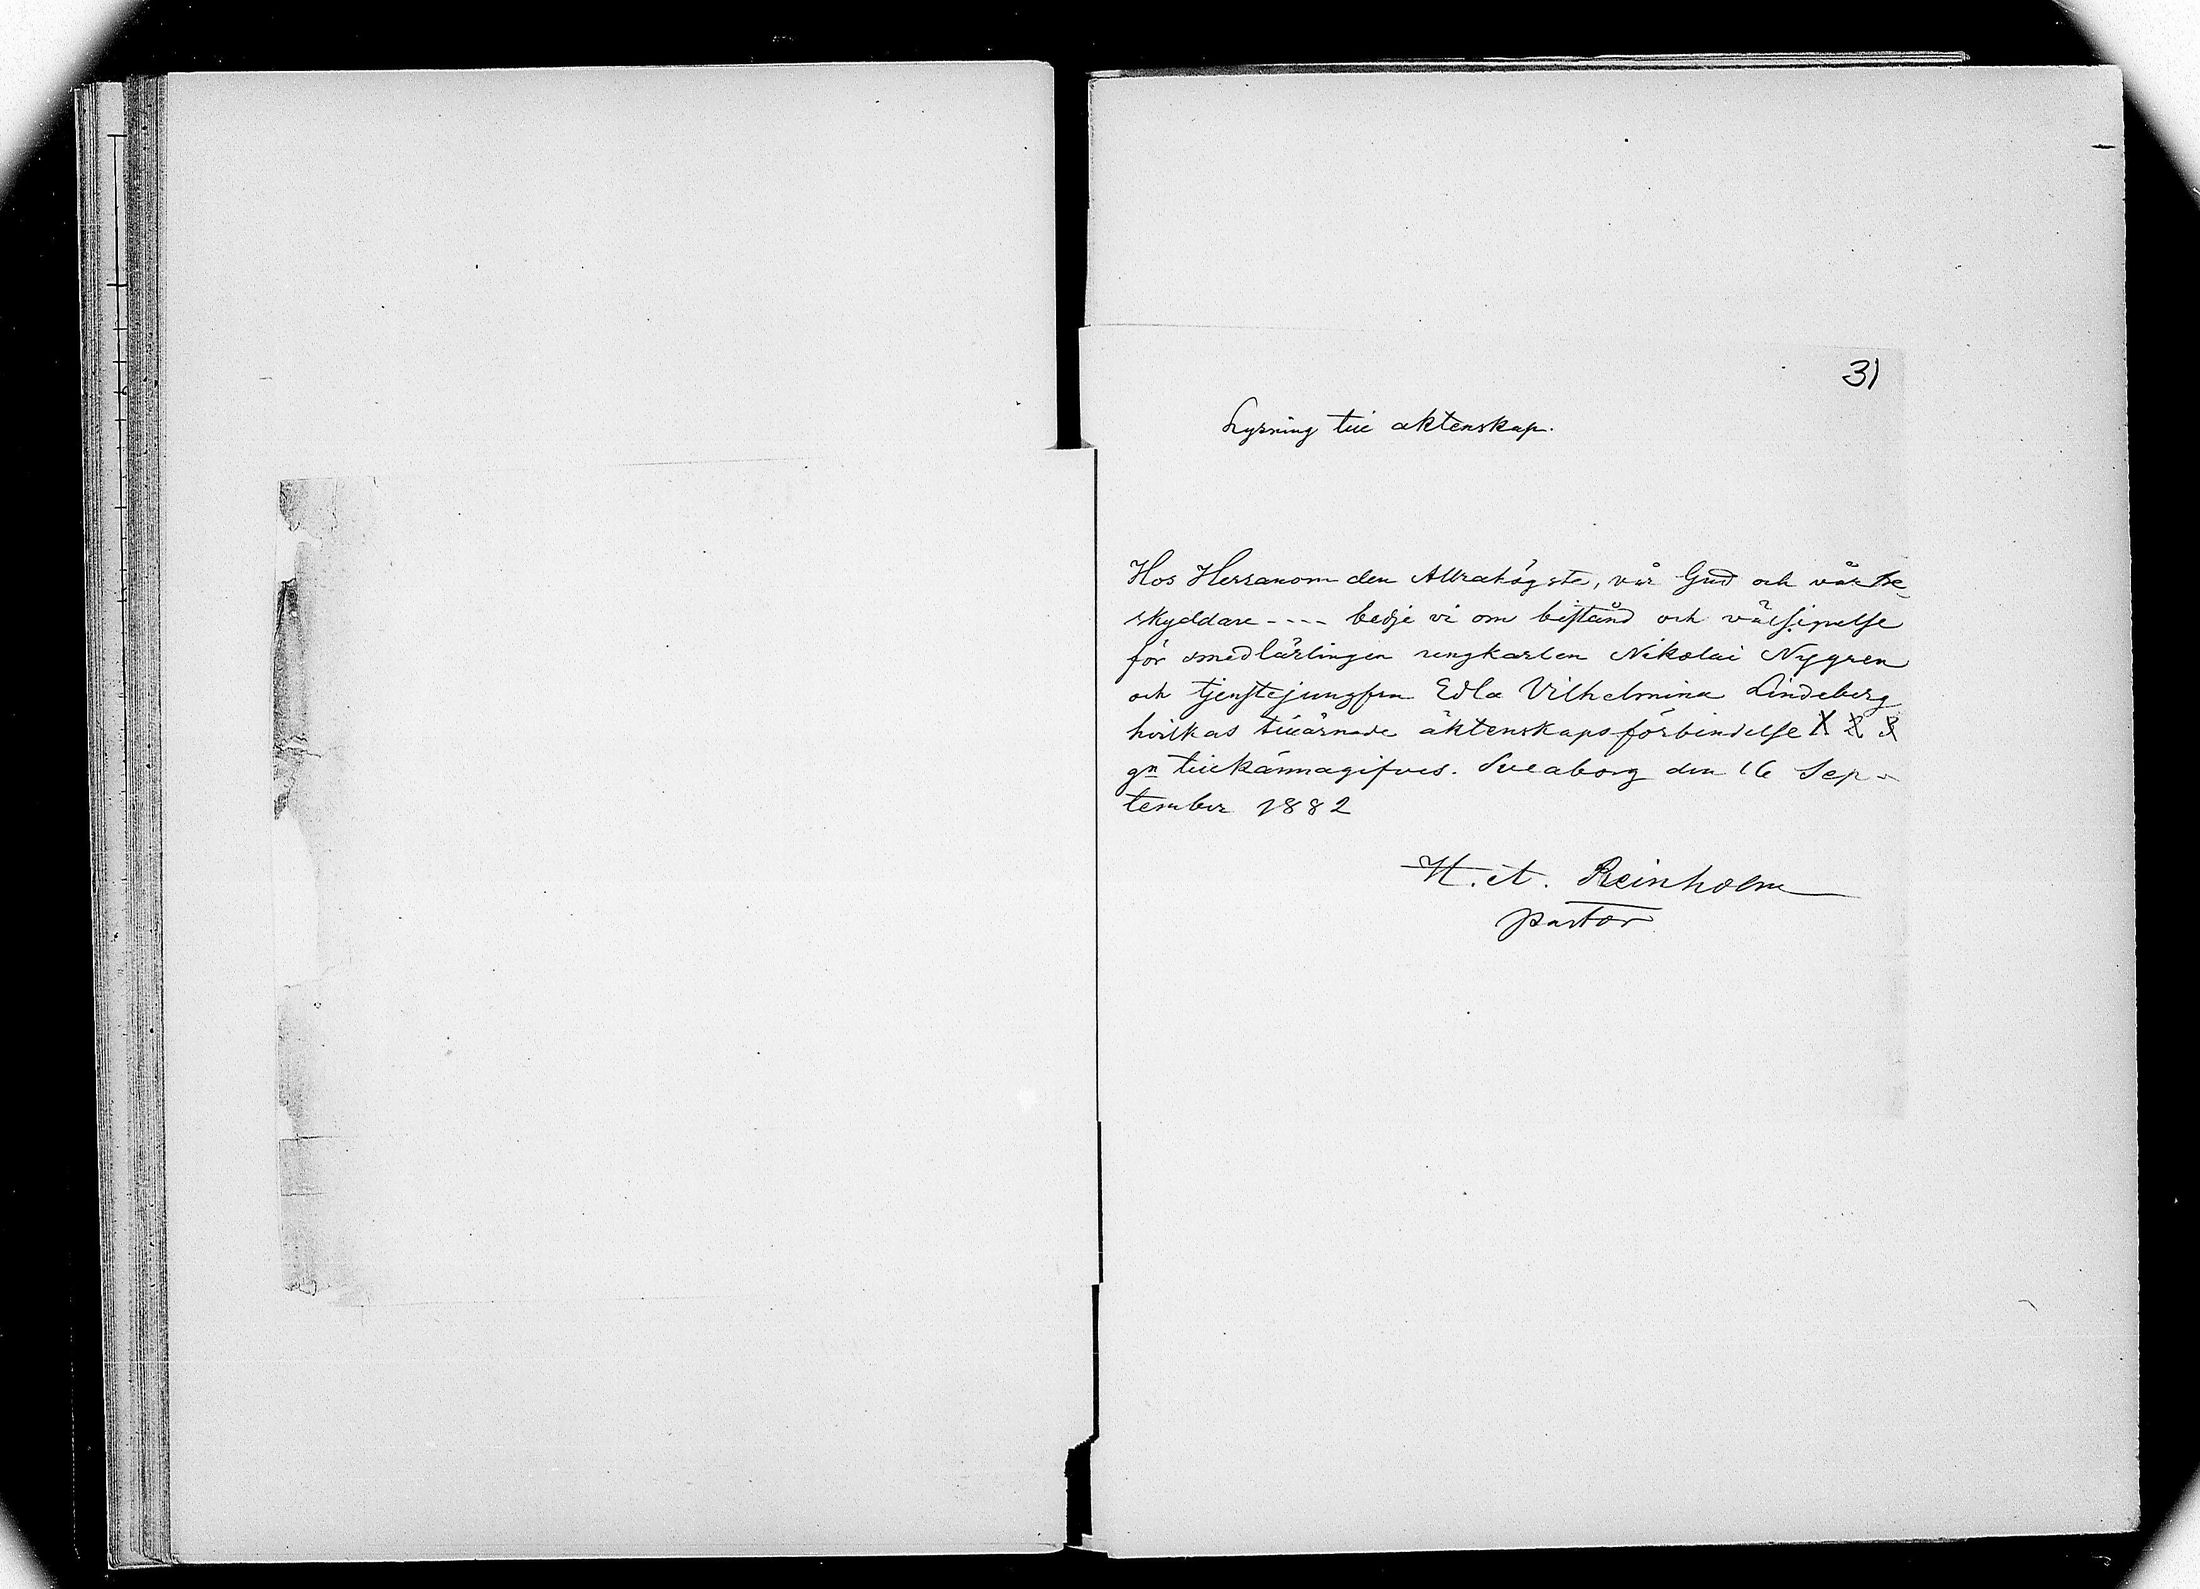 31
Lysning till äktenskap.
Hos Herranom den Allrahögste, vår Gud och vår be-
skyddare - - - - bedje vi om bistånd och välsignelse
för smedlärlingen ungkarlen Nikolai Nygren
och tjenstejungfrun Edla Vilhelmina Lindeberg
hvilkas tillärnade äktenskapsförbindelse 1 2 3
gn tillkännagifves. Sveaborg den 16 Sep-
tember 1882
H. A. Reinholm
pastor